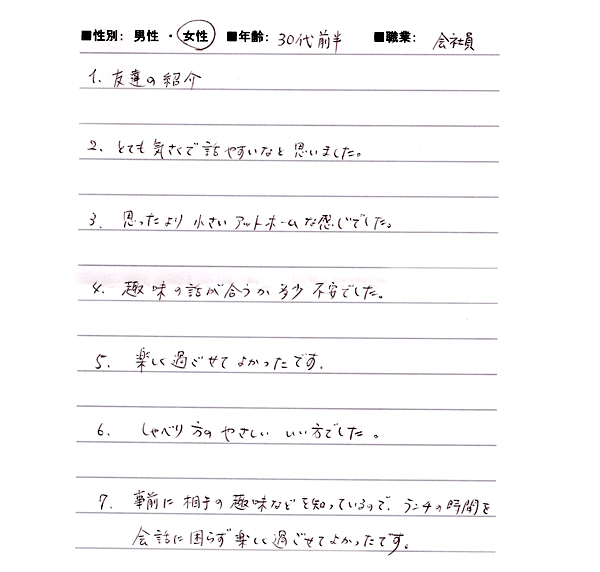 ■性別: 男性 ・ 女性 ■年齢: 30代前半 ■職業: 会社員
1. 友達の紹介
2. とても気さくで話やすいなと思いました。
3. 思ったより小さいアットホームな感じでした。
4. 趣味の話が合うか多少不安でした。
5. 楽しく過ごせてよかったです.
6. しゃべり方のやさしいいい方でした。
7. 事前に相手の趣味などを知っているので、ランチの時間を
会話に困らず楽しく過ごせてよかったです。